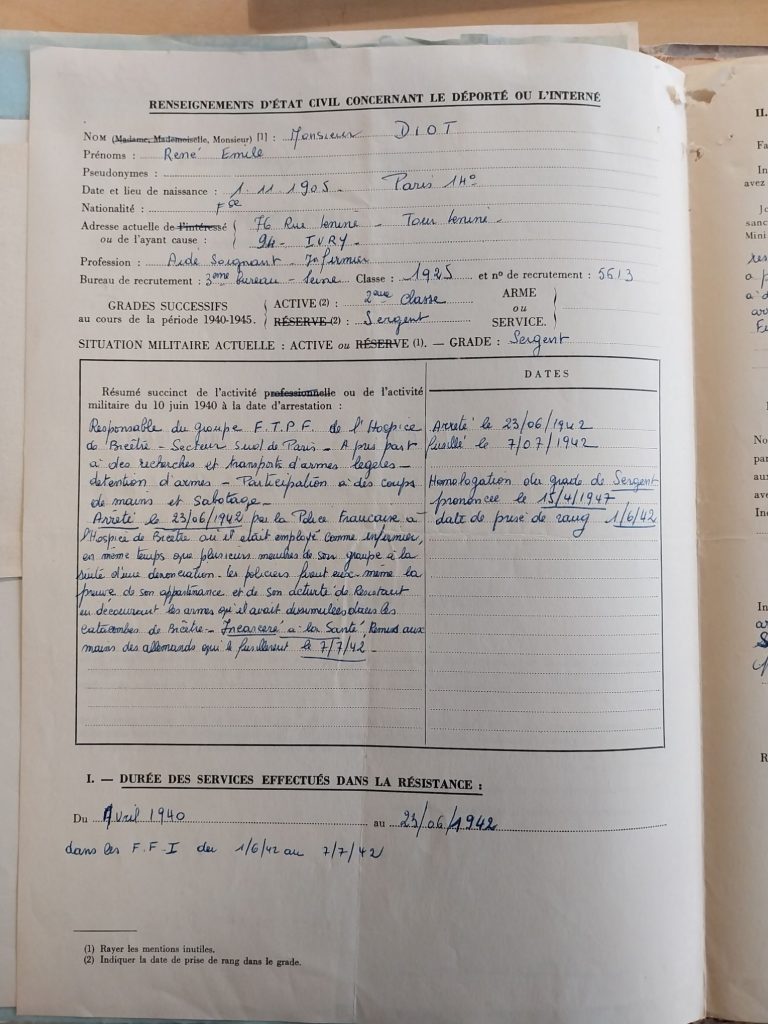 RENSEIGNEMENTS D'ÉTAT CIVIL CONCERNANT LE DÉPORTÉ OU L'INTERNÉ
NOM (Madame, Mademoiselle, Monsieur) [1] : Monsieur DIOT
Prénoms : René Emile
Pseudonymes :
Date et lieu de naissance : 1.11.1905 - Paris 14e
Nationalité : Fse
Adresse actuelle de l'intéressé 76 Rue Lenine - Tour Lenine -
ou de l'ayant cause : 94 - IVRY -
Profession : Aide Soignant - Infirmier
Bureau de recrutement : 3eme bureau - Seine Classe : 1925 et n° de recrutement : 5613
GRADES SUCCESSIFS au cours de la période 1940-1945.
ACTIVE (2) : 2eme classe
RÉSERVE (2) : Sergent
ARME ou SERVICE.
SITUATION MILITAIRE ACTUELLE : ACTIVE ou RÉSERVE (1). — GRADE : Sergent
Résumé succinct de l'activité professionnelle ou de l'activité
militaire du 10 juin 1940 à la date d'arrestation :
Responsable du groupe F.T.P.F. de l'Hospice
de Bicêtre - Secteur Sud de Paris - A pris part
à des recherches et transports d'armes légères -
detention d'armes - Participation à des coups
de mains et Sabotage -
Arreté le 23/06/1942 par la Police Francaise à
l'Hospice de Bicêtre ou il etait employé comme infirmier,
en même temps que plusieurs membres de son groupe à la
suite d'une denonciation. Les policiers firent eux-même la
preuve de son appartenance et de son activité de Resistant
en découvrant les armes qu'il avait dissimulées dans les
catacombes de Bicêtre - Incarceré à la Santé, Remis aux
mains des allemands qui le fusillerent le 7/7/42 -
DATES
Arreté le 23/06/1942
fusillé le 7/07/1942
Homologation du grade de Sergent
prononcée le 15/4/1947
date de prise de rang 1/6/42
I. — DURÉE DES SERVICES EFFECTUÉS DANS LA RÉSISTANCE :
Du Avril 1940 au 23/06/1942
dans les F.F.I du 1/6/42 au 7/7/42
(1) Rayer les mentions inutiles.
(2) Indiquer la date de prise de rang dans le grade.
II.